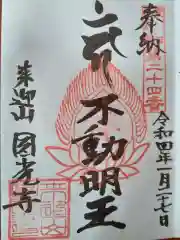 奉納
二十四番
令和四年一月二十七日
不動明王
来迎山
圓光寺